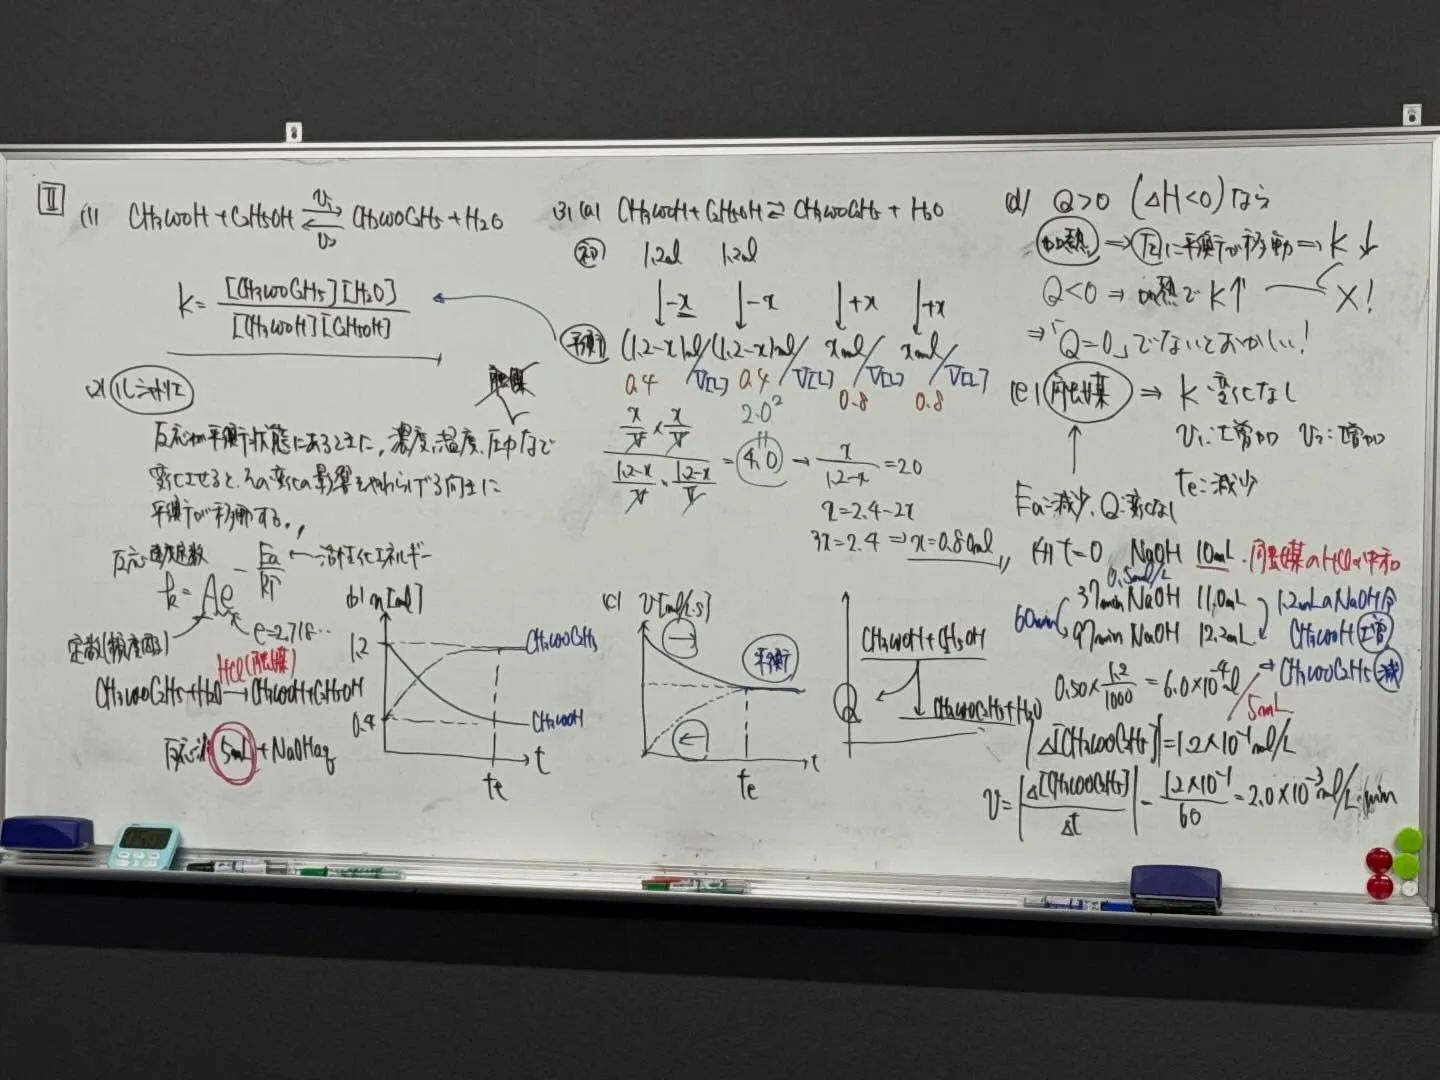 II
(1) CH3COOH + C2H5OH ⇄ CH3COOC2H5 + H2O
v1
v2
K = [CH3COOC2H5][H2O] / [CH3COOH][C2H5OH]
(2) ルシャトリエ
触媒
反応が平衡状態にあるときに, 濃度, 温度, 圧力などで
変化させると, その変化の影響をやわらげる向きに
平衡が移動する。
反応速度定数
k = Ae^(-Ea/RT) ← 活性化エネルギー
定数(頻度因子)
e=2.718…
HCl(触媒)
CH3COOC2H5 + H2O → CH3COOH + C2H5OH
反応液 5mL + NaOHaq
(3) (a) CH3COOH + C2H5OH ⇄ CH3COOC2H5 + H2O
初 1.2mol 1.2mol
↓-x ↓-x ↓+x ↓+x
平衡 (1.2-x)mol/V[L] (1.2-x)mol/V[L] x mol/V[L] x mol/V[L]
0.4 0.4 0.8 0.8
2.0²
x/V × x/V / (1.2-x)/V × (1.2-x)/V = 4.0 → x/(1.2-x) = 2.0
x = 2.4-2x
3x = 2.4 ⇒ x = 0.80mol
(b) n[mol]
1.2
0.4
CH3COOC2H5
CH3COOH
te
t
(c) v[mol/L·s]
→
平衡
←
te
t
CH3COOH + C2H5OH
Q
CH3COOC2H5 + H2O
(d) Q>0 (ΔH<0)なら
加熱 ⇒ 左に平衡が移動 ⇒ K↓
Q<0 ⇒ 加熱でK↑ X!
⇒「Q=0」でないとおかしい!
(e) 触媒 ⇒ K:変化なし
v1:増加 v2:増加
te:減少
Ea:減少, Q:変化なし
(f) t=0 NaOH 10mL・触媒のHClの中和
0.5mol/L
37min NaOH 11.0mL
60min
97min NaOH 12.2mL
1.2mLのNaOH分
CH3COOH 増
→ CH3COOC2H5 減
0.50 × 1.2/1000 = 6.0×10⁻⁴mol
/5mL
|Δ[CH3COOC2H5]| = 1.2×10⁻¹mol/L
v = |Δ[CH3COOC2H5]/Δt| = 1.2×10⁻¹/60 = 2.0×10⁻³mol/L·min